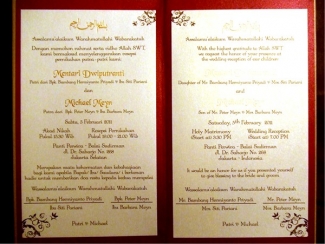 Assalamu'alaikum Warahmatullahi Wabarakatuh
Dengan memohon rahmat serta ridho Allah SWT.
kami bermaksud menyelenggarakan resepsi
pernikahan putra - putri kami:
Mentari Dwiputrenti
Putri dari Bpk. Bambang Harriyanto Priyadi & Ibu Siti Fatiani
dan
Michael Meyn
Putra dari Bpk. Peter Meyn & Ibu Barbara Meyn
Sabtu, 5 Februari 2011
Akad Nikah
Pukul 15.00 Wib
Resepsi Pernikahan
Pukul 19.00 - 21.00 Wib
Panti Perwira - Balai Sudirman
Jl. Dr. Saharjo No. 268
Jakarta Selatan
Merupakan suatu kehormatan dan kebahagiaan
bagi kami apabila Bapak/ Ibu/ Saudara/ i berkenan
hadir untuk memberikan doa restu kepada kedua mempelai
Wassalamu'alaikum Warahmatullahi Wabarakatuh
Bpk. Bambang Harriyanto Priyadi
Ibu Siti Fatiani
Bpk. Peter Meyn
Ibu Barbara Meyn
Putri & Michael
Assalamu'alaikum Warahmatullahi Wabarakatuh
With the highest gratitude to Allah SWT
we request the honor of your presence at
the wedding reception of our children
Daughter of Mr. Bambang Harriyanto Priyadi & Mrs Siti Fatiani
and
Son of Mr. Peter Meyn & Mrs Barbara Meyn
Saturday, 5th February, 2011
Holy Matrimony
Start at: 3.00 PM
Wedding Reception
Start at: 7.00 PM
Panti Perwira - Balai Sudirman
Jl. Dr. Saharjo No. 268
Jakarta - Indonesia
It would be an honor for us if you presented yourself
to give blessing to the bride and groom.
Wassalamu'alaikum Warahmatullahi Wabarakatuh
Mr. Bambang Harriyanto Priyadi
Mrs. Siti Fatiani
Mr. Peter Meyn
Mrs. Barbara Meyn
Putri & Michael